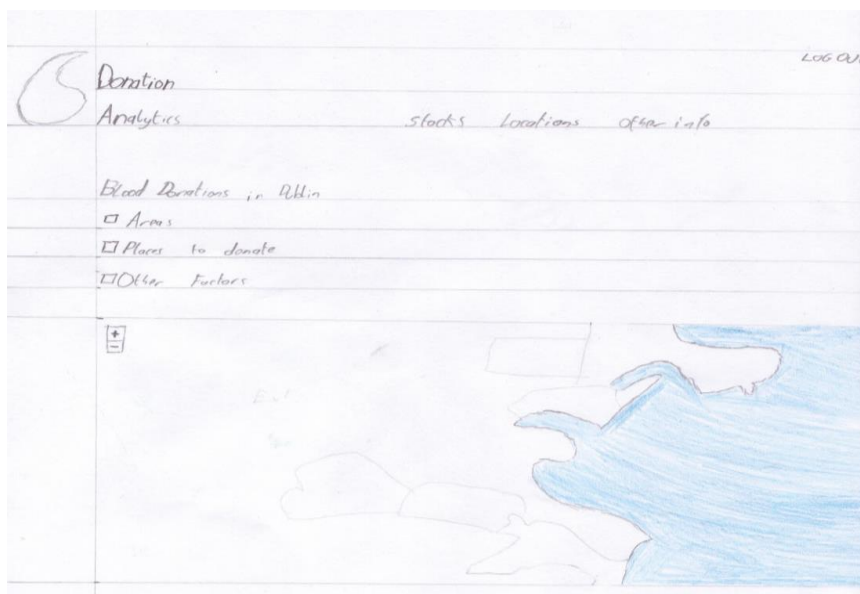 LOG OU
Donation
Analytics
stocks Locations Other info
Blood Donations in Dublin
Areas
Places to donate
Other Factors
+
-